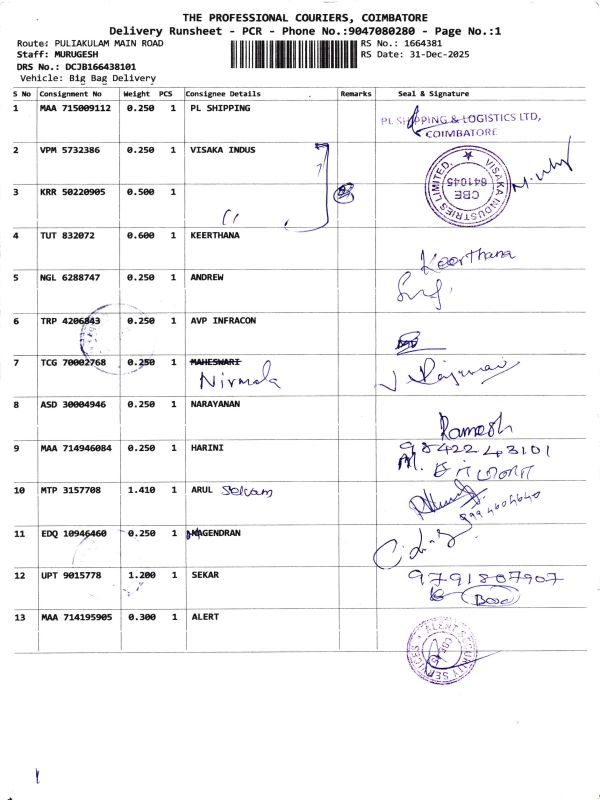 THE PROFESSIONAL COURIERS, COIMBATORE
Delivery Runsheet - PCR - Phone No.:9047080280 - Page No.:1
Route: PULIAKULAM MAIN ROAD RS No.: 1664381
Staff: MURUGESH RS Date: 31-Dec-2025
DRS No.: DCJB166438101
Vehicle: Big Bag Delivery
S No Consignment No Weight PCS Consignee Details Remarks Seal & Signature
1 MAA 715009112 0.250 1 PL SHIPPING
PL SHIPPING & LOGISTICS LTD,
COIMBATORE
2 VPM 5732386 0.250 1 VISAKA INDUS
VISAKA INDUSTRIES LIMITED.
CBE
641045
3 KRR 50220905 0.500 1
4 TUT 832072 0.600 1 KEERTHANA
Keerthana
5 NGL 6288747 0.250 1 ANDREW
6 TRP 4206843 0.250 1 AVP INFRACON
7 TCG 70002768 0.250 1 MAHESWARI
Nirmala
8 ASD 30004946 0.250 1 NARAYANAN
Ramesh
9 MAA 714946084 0.250 1 HARINI
9842243101
10 MTP 3157708 1.410 1 ARUL Selvam
11 EDQ 10946460 0.250 1 NAGENDRAN
12 UPT 9015778 1.200 1 SEKAR
9791807907
13 MAA 714195905 0.300 1 ALERT
ALERT SECURITY SERVICES